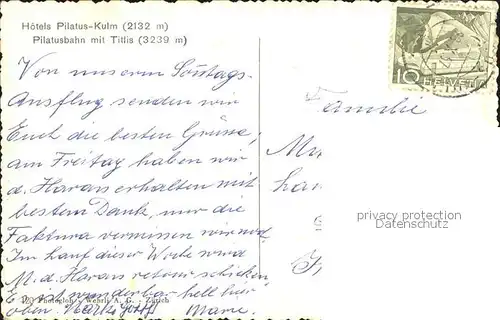 Hôtels Pilatus-Kulm (2132 m)
Pilatusbahn mit Titlis (3239 m)
10 HELVETIA
Von unserm Sonntags-
Ausflug senden wir
Euch die besten Grüsse,
am Freitag haben wir
d. Haraß erhalten mit
bestem Dank, nur die
Faktura vermissen wir noch
Im Lauf dieser Woche wird
M. d. Haraß retour schicken,
Es ist wunderbar hell hier
oben.
Marie
Familie
privacy protection
Datenschutz
Photoglob-Wehrli A. G. - Zürich